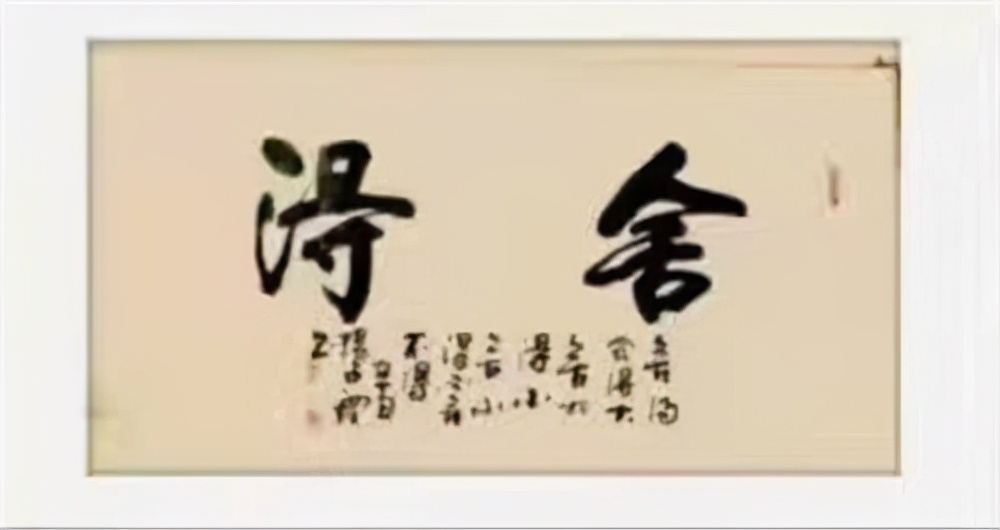 舍得
舍得
舍得大
舍大
得小
舍小
得不舍
不得